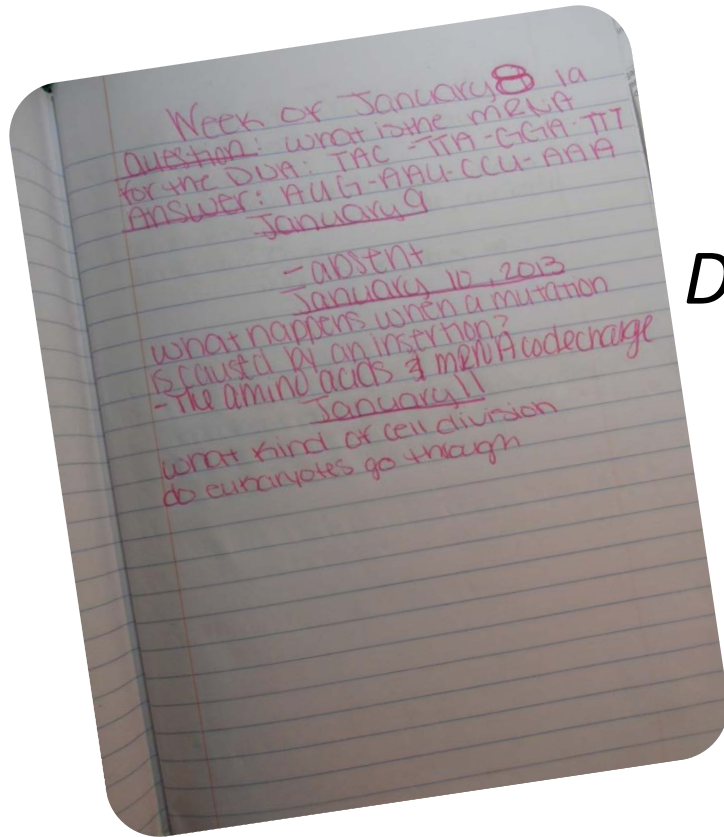 Week of January 8 1a
Question: what is the mRNA
for the DNA: TAC -TTA -GGA -TTT
Answer: AUG-AAU-CCU-AAA
January 9
-absent
January 10, 2013
what happens when a mutation
is caused by an insertion?
-The amino acids & mRNA code change
January 11
what kind of cell division
do eukaryotes go through
D